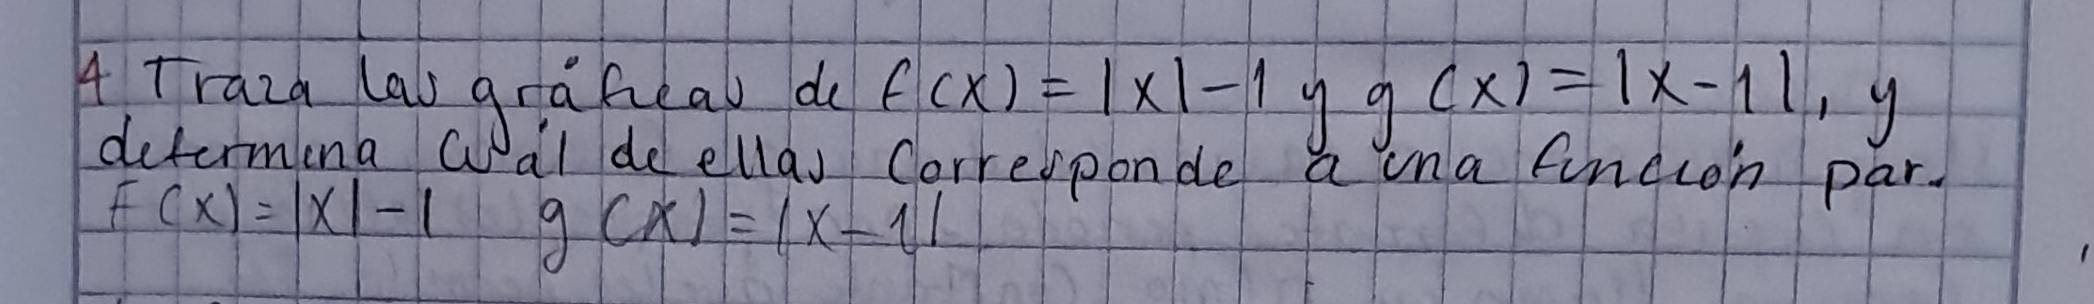 4 Traza las gráficas de f(x)=|x|-1 y g(x)=|x-1|, y
determina cuál de ellas corresponde a una función par.
F(x)=|x|-1 g(x)=|x-1|